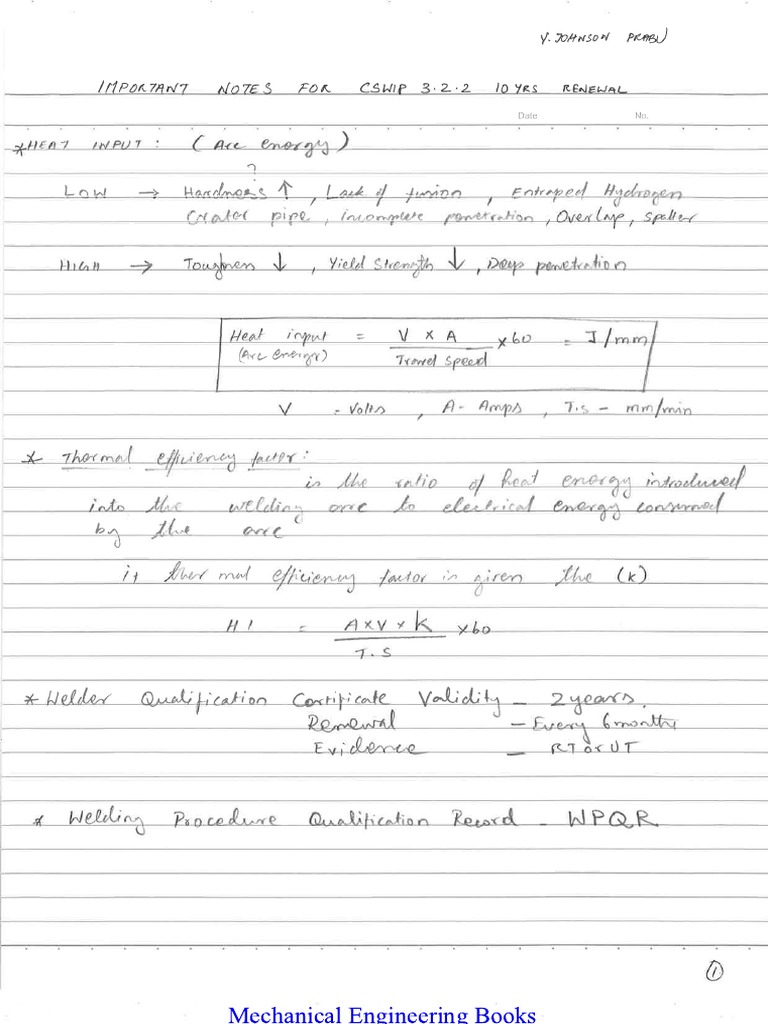 Y. JOHNSON PRABU
IMPORTANT NOTES FOR CSWIP 3.2.2 10 YRS RENEWAL
Date No.
* HEAT INPUT : (Arc energy)
?
LOW → Hardness ↑ , Lack of fusion , Entraped Hydrogen
Crater pipe , incomplete penetration , Overlap , spatter
HIGH → Toughness ↓ , Yield Strength ↓ , Deep penetration
Heat input = V x A x 60 = J/mm
(Arc energy) Travel speed
V = Volts , A - Amps , T.S - mm/min
* Thermal efficiency factor :
is the ratio of heat energy introduced
into the welding arc to electrical energy consumed
by the arc
if thermal efficiency factor is given the (k)
HI = A x V x K x 60
T.S
* Welder Qualification Certificate Validity - 2 years.
Renewal - Every 6 months
Evidence - RT or UT
* Welding Procedure Qualification Record - WPQR
1
Mechanical Engineering Books